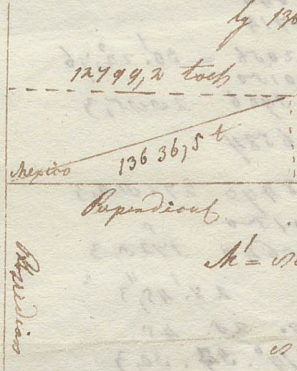 lg 136
12799,2 tois
Mexico
13636,5 t
Perpendicul
Meridian
M' =